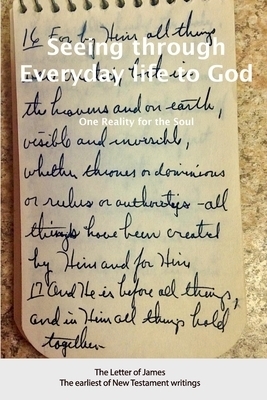 16 For by Him all things
Seeing through
Everyday life to God
both in
the heavens and on earth,
One Reality for the Soul
visible and invisible,
whether thrones or dominions
or rulers or authorities - all
things have been created
by Him and for Him
17 And He is before all things,
and in Him all things hold
together.
The Letter of James
The earliest of New Testament writings